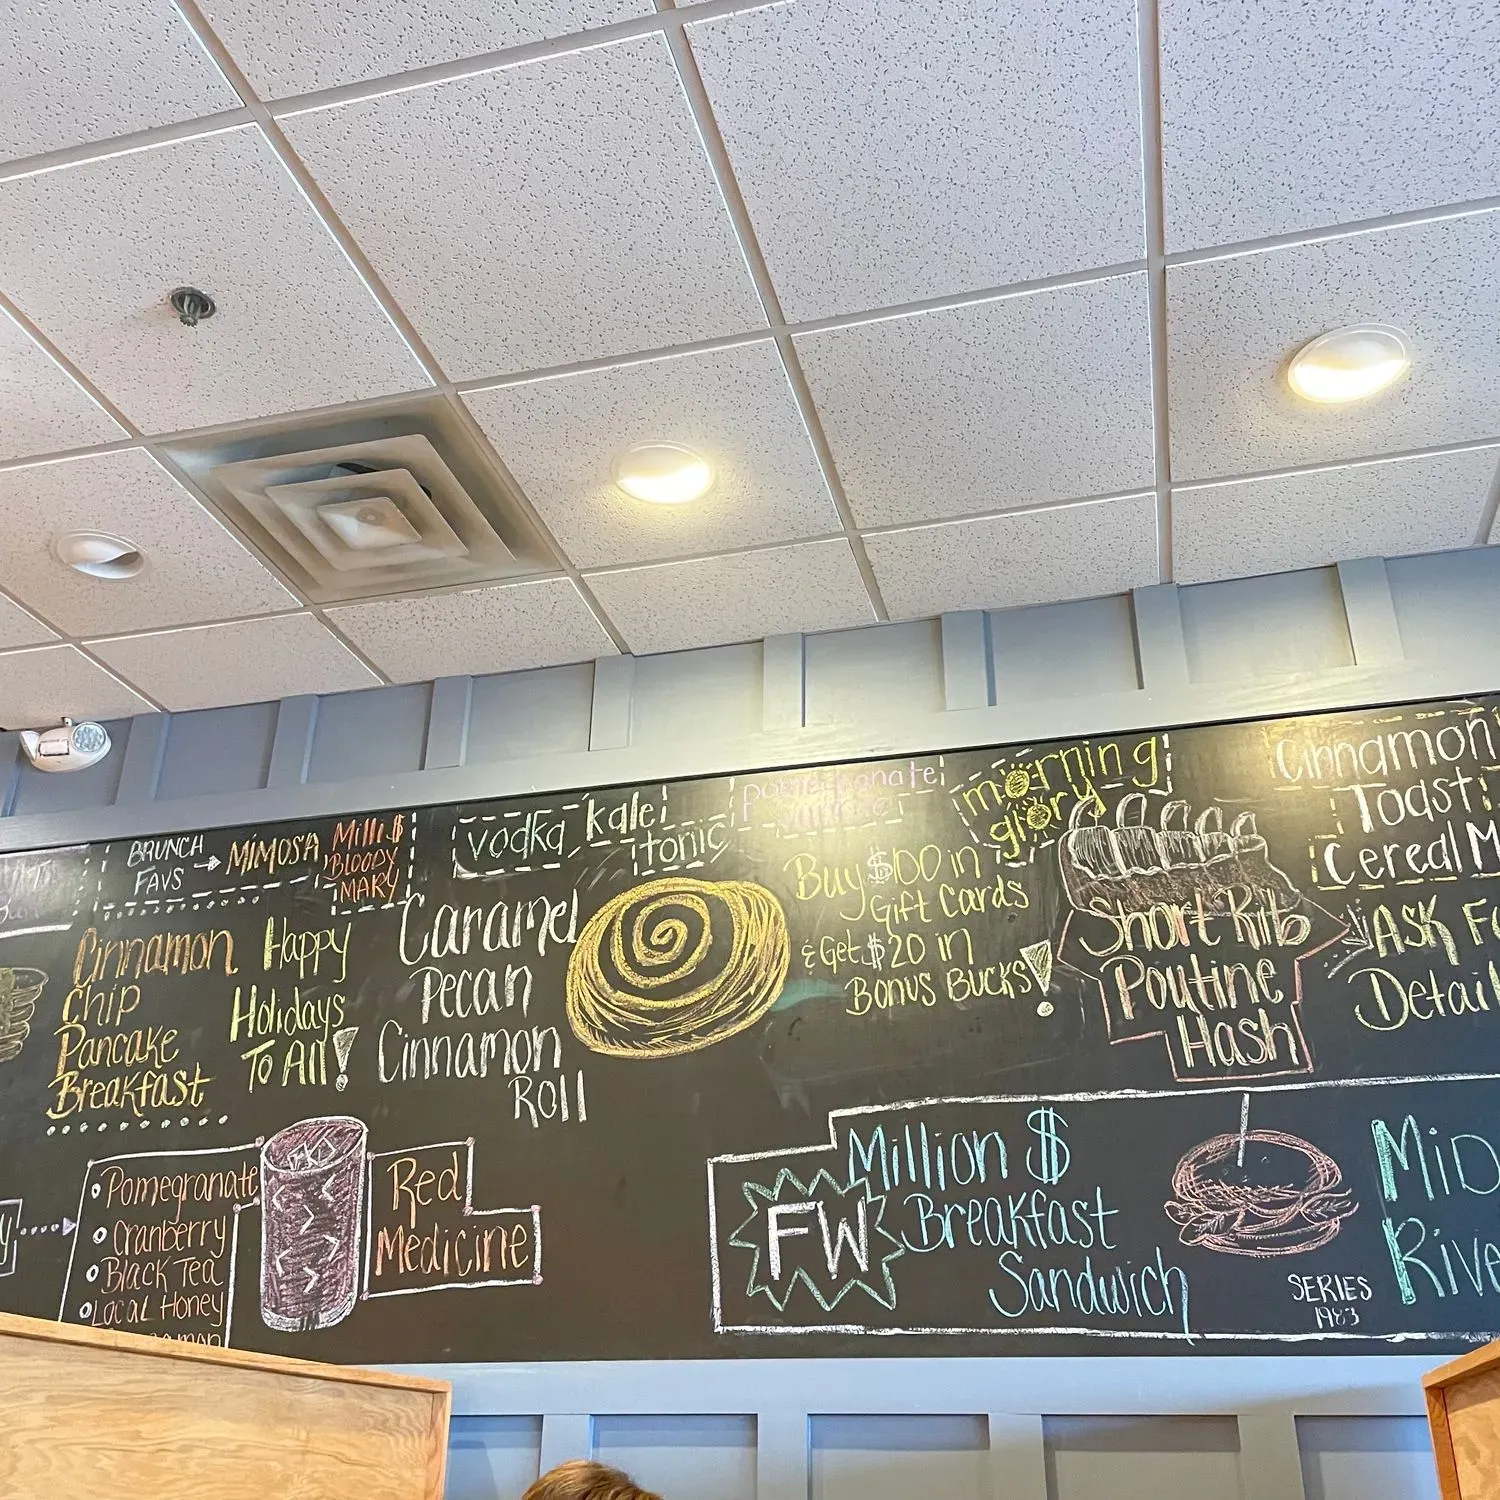 BRUNCH
FAVS
MIMOSA
Milli $
BLOODY
MARY
vodka kale
tonic
morning
glory
Cinnamon
Toast
Cereal M
Cinnamon
Chip
Pancake
Breakfast
Happy
Holidays
To All!
Caramel
Pecan
Cinnamon
Roll
Buy $100 in
Gift Cards
& Get $20 in
Bonus Bucks!
Short Rib
Poutine
Hash
ASK Fo
Detail
Pomegranate
Cranberry
Black Tea
Local Honey
Red
Medicine
FW
Million $
Breakfast
Sandwich
SERIES
1983
Mid
Rive